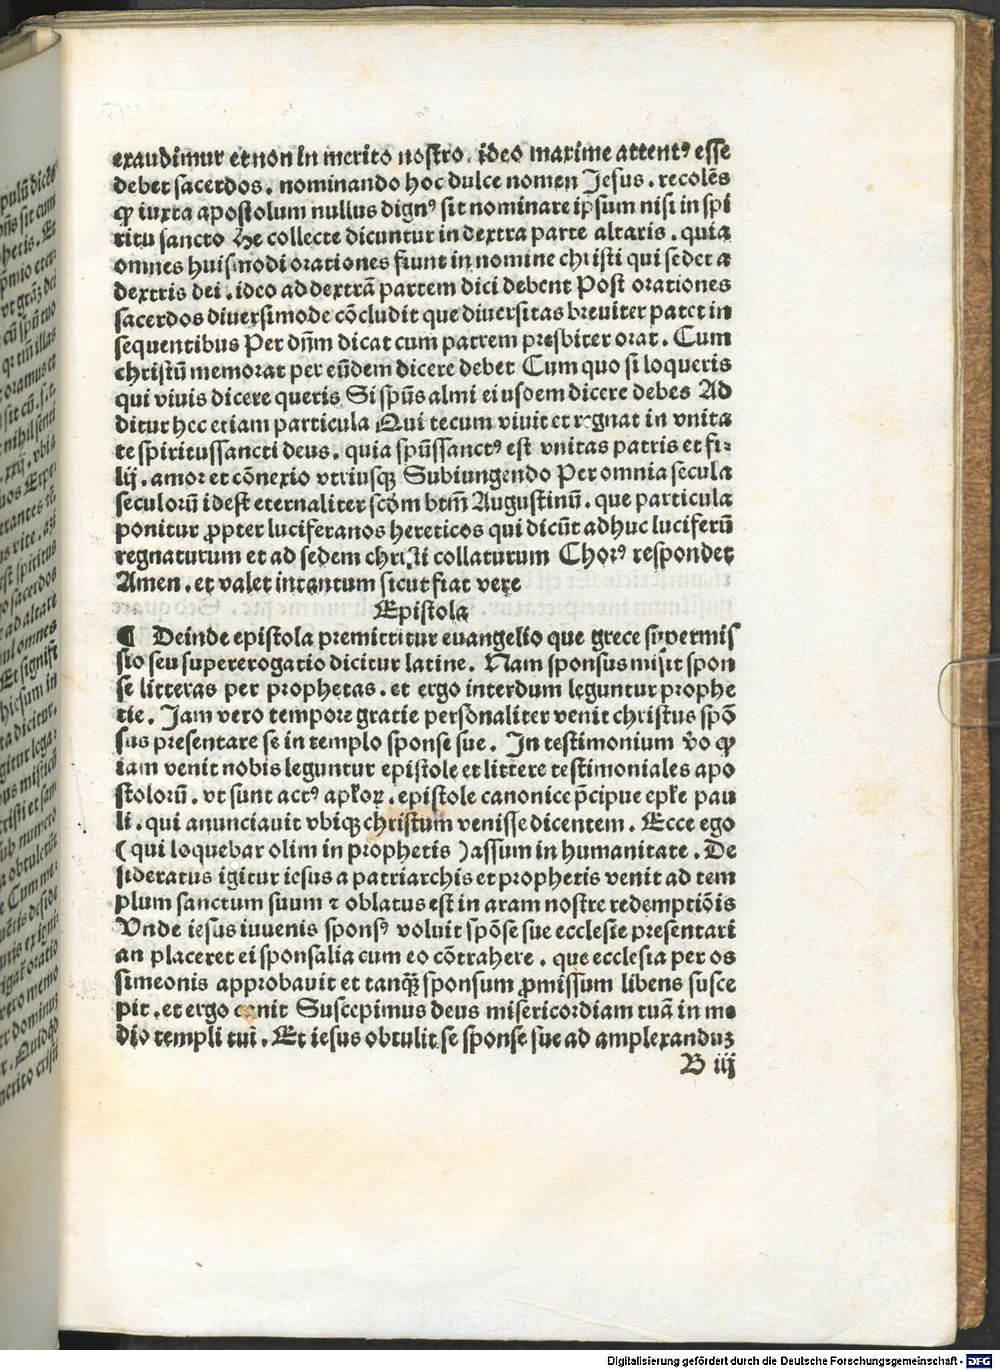 exaudimur et non in merito nostro. ideo maxime attentꝰ esse
debet sacerdos. nominando hoc dulce nomen Jesus. recolēs
ꝙ iuxta apostolum nullus dignꝰ sit nominare ipsum nisi in spi
ritu sancto He collecte dicuntur in dextra parte altaris. quia
omnes huismodi orationes fiunt in nomine christi qui sedet a
dextris dei. ideo ad dextrā partem dici debent Post orationes
sacerdos diuersimode cōcludit que diuersitas breuiter patet in
sequentibus Per dn̄m dicat cum patrem presbiter orat. Cum
christū memorat per eūdem dicere debet Cum quo si loqueris
qui viuis dicere queris Si spūs almi eiusdem dicere debes Ad
ditur hec etiam particula Qui tecum viuit et regnat in vnita
te spiritussancti deus. quia spūssanctꝰ est vnitas patris et fi⸗
lij. amor et cōnexio vtriusqꝫ Subiungendo Per omnia secula
seculorū id est eternaliter scḋm btm̄ Augustinū. que particula
ponitur ꝓpter luciferanos hereticos qui dicūt adhuc luciferū
regnaturum et ad sedem christi collaturum Chorꝰ respondet
Amen. et valet intantum sicut fiat vere
Epistola
¶ Deinde epistola premittitur euangelio que grece supermis
sio seu supererogatio dicitur latine. Nam sponsus misit spon
se litteras per prophetas. et ergo interdum leguntur prophe
tie. Jam vero tempore gratie personaliter venit christus spō
sus presentare se in templo sponse sue. In testimonium v̊o ꝙ
iam venit nobis leguntur epistole et littere testimoniales apo
stolorū. vt sunt actꝰ apl̓oꝝ. epistole canonice p̄cipue epl̓e pau
li. qui anunciauit vbiqꝫ christum venisse dicentem. Ecce ego
(qui loquebar olim in prophetis) assum in humanitate. De
sideratus igitur iesus a patriarchis et prophetis venit ad tem
plum sanctum suum ⁊ oblatus est in aram nostre redemptiōis
Vnde iesus iuuenis sponsꝰ voluit spōse sue ecclesie presentari
an placeret ei sponsalia cum eo cōtrahere. que ecclesia per os
simeonis approbauit et tanqꝫ̄ sponsum ꝓmissum libens susce
pit. et ergo canit Suscepimus deus misericordiam tuā in me
dio templi tui. Et iesus obtulit se sponse sue ad amplexanduꝫ
B iij
Digitalisierung gefördert durch die Deutsche Forschungsgemeinschaft - DFG